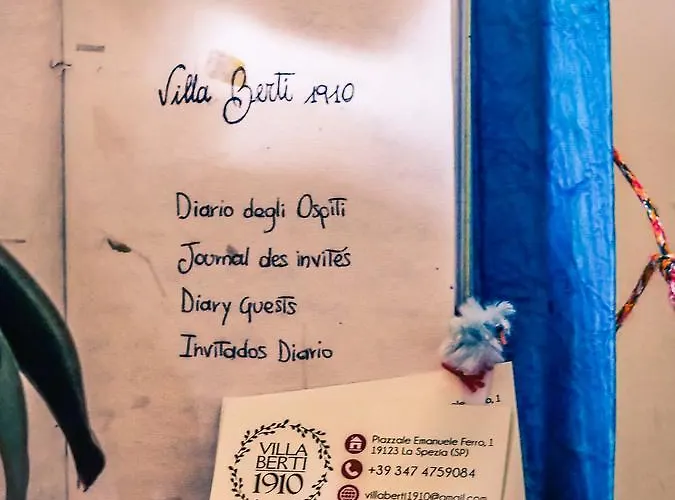 Villa Berti 1910
Diario degli Ospiti
Journal des invités
Diary Guests
Invitados Diario
VILLA
BERTI
1910
Piazzale Emanuele Ferro, 1
19123 La Spezia (SP)
+39 347 4759084
villaberti1910@gmail.com